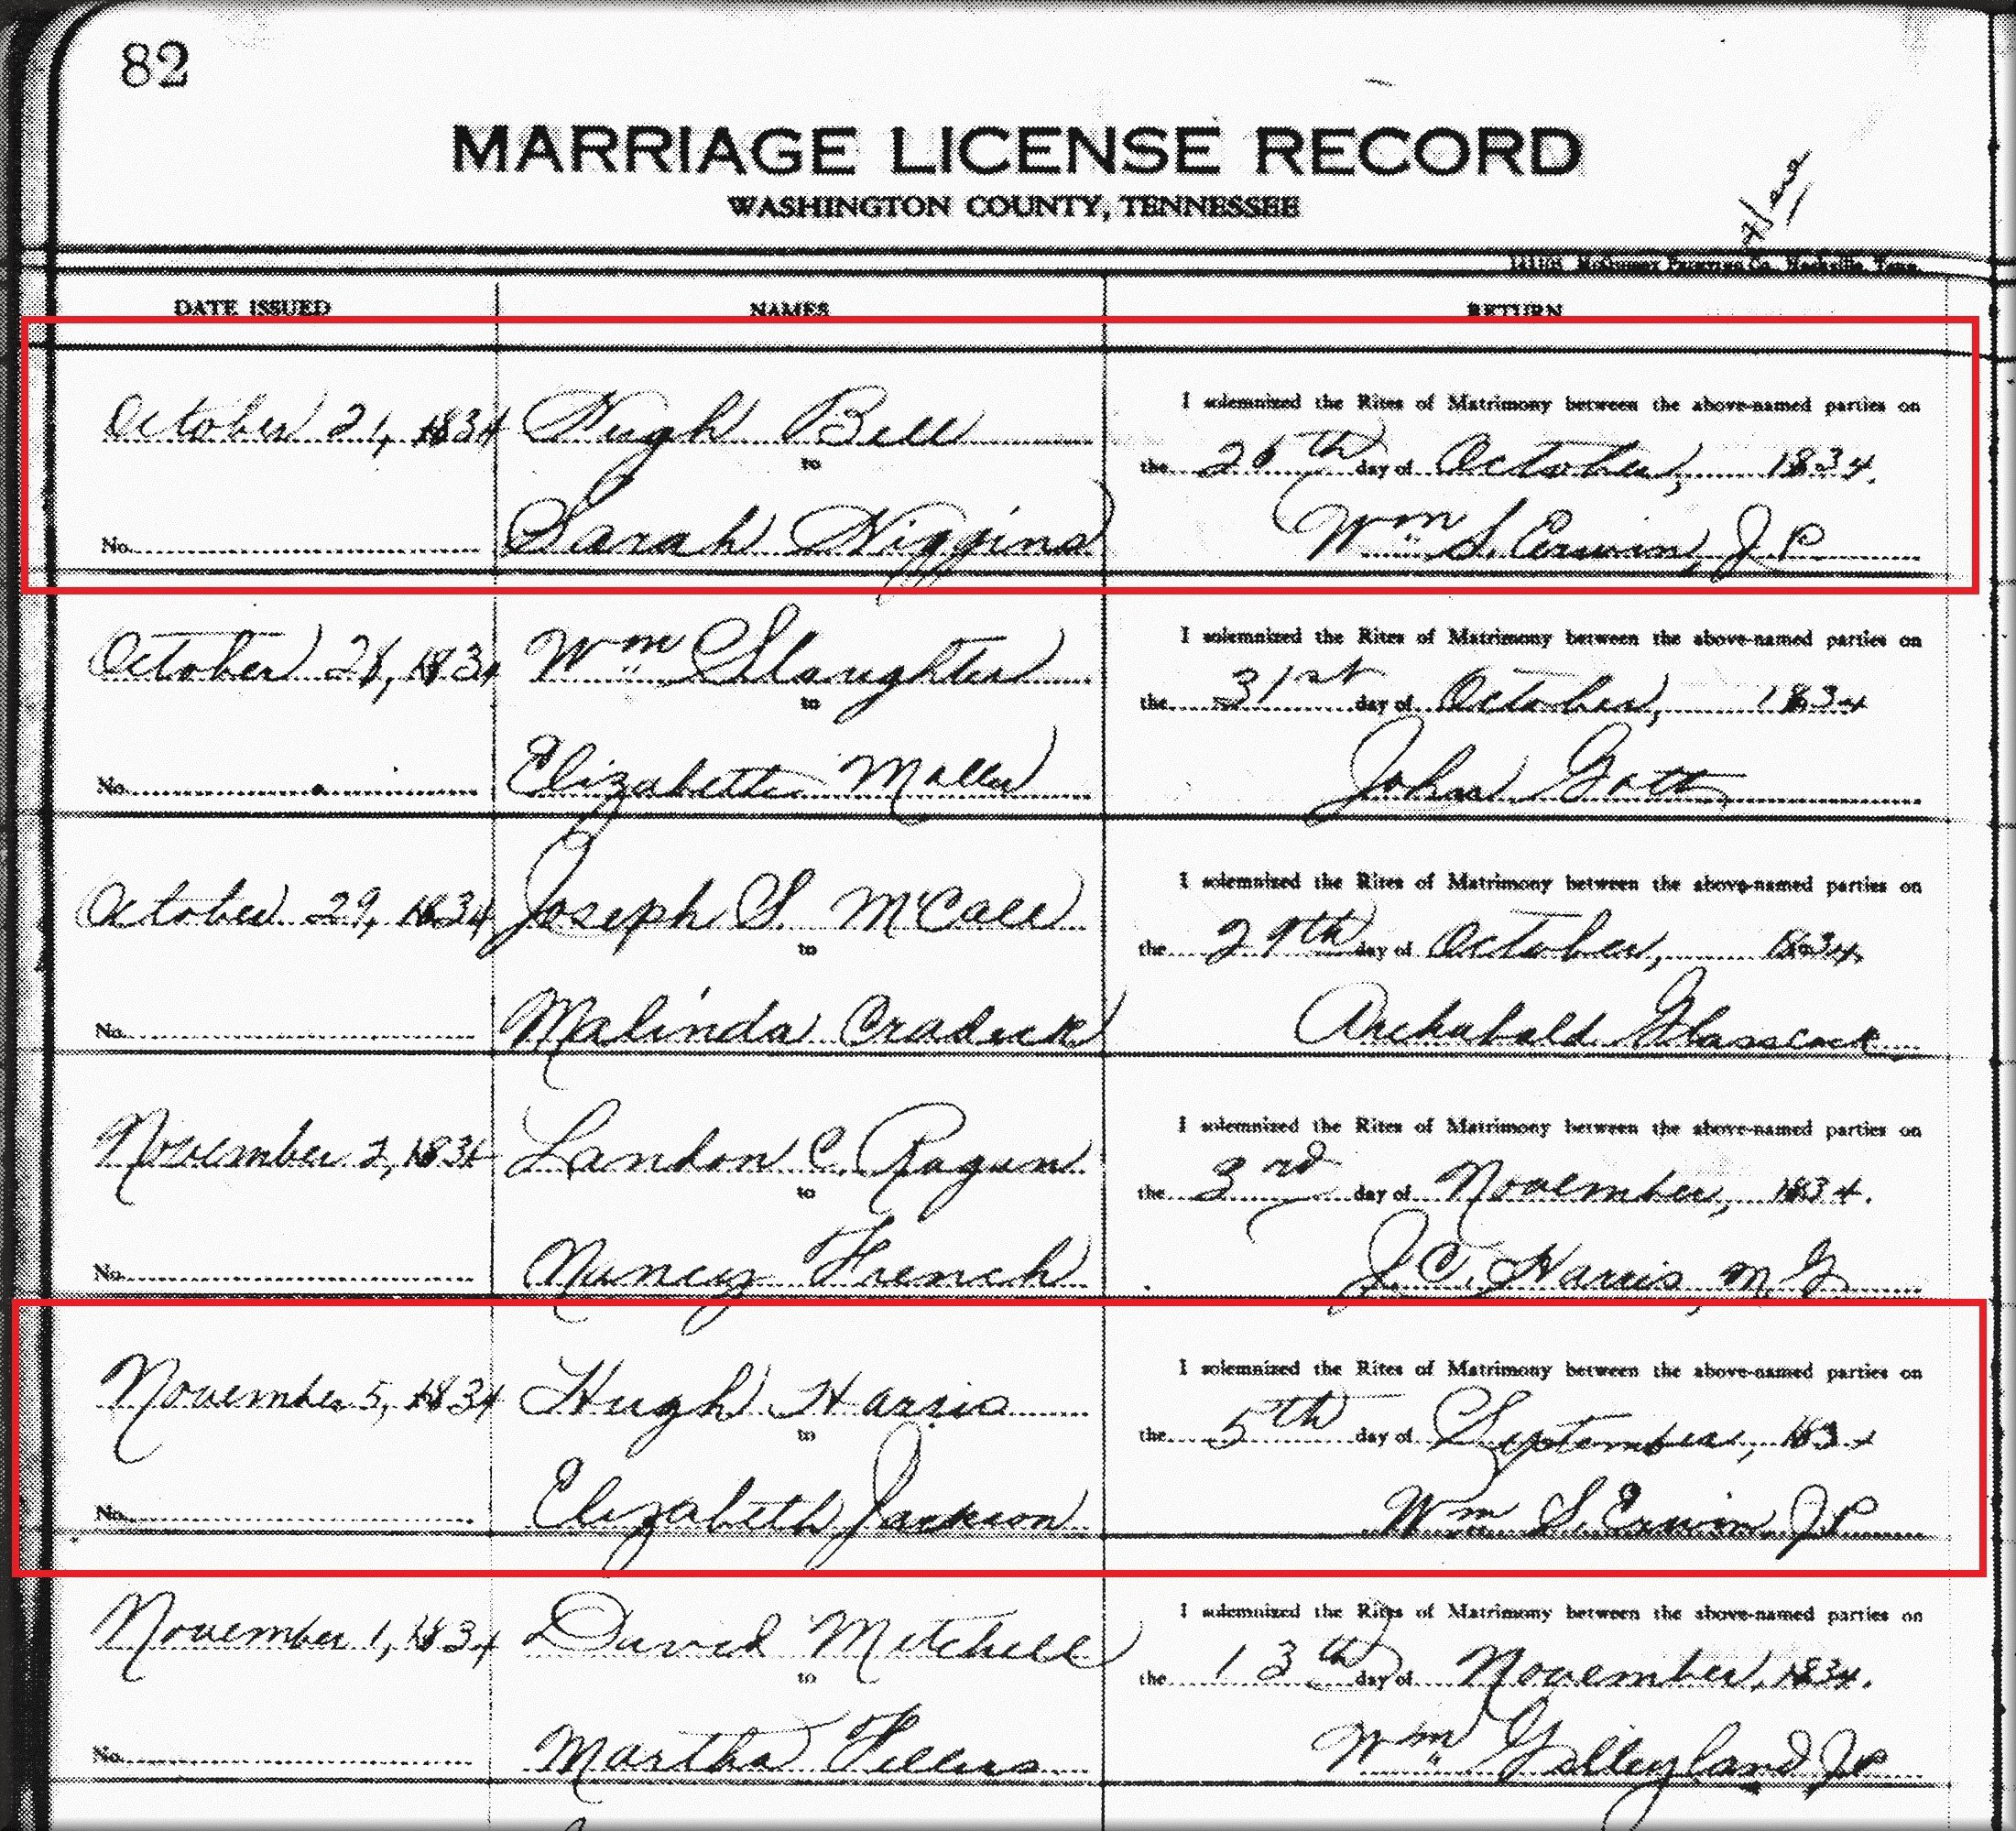 82
MARRIAGE LICENSE RECORD
WASHINGTON COUNTY, TENNESSEE
DATE ISSUED NAMES RETURN
October 21, 1834 Hugh Bell I solemnized the Rites of Matrimony between the above-named parties on
to the 26th day of October, 1834.
No. Sarah Higgins Wm S. Erwin, J.P.
October 28, 1834 Wm Slaughter I solemnized the Rites of Matrimony between the above-named parties on
to the 31st day of October, 1834
No. Elizabeth John Gott
October 29, 1834 Joseph S. McCall I solemnized the Rites of Matrimony between the above-named parties on
to the 29th day of October, 1834.
No. Malinda Cradick Archabald Glasscock
November 2, 1834 Landon C. Ragan I solemnized the Rites of Matrimony between the above-named parties on
to the 3rd day of November, 1834.
No. Nancy French J.C. Harris, M.G.
November 5, 1834 Hugh Harris I solemnized the Rites of Matrimony between the above-named parties on
to the 5th day of September, 1834
No. Elizabeth Jackson Wm S. Erwin, J.P.
November 1, 1834 David Mitchell I solemnized the Rites of Matrimony between the above-named parties on
to the 13th day of November, 1834.
No. Martha Fellers Wm J.P.